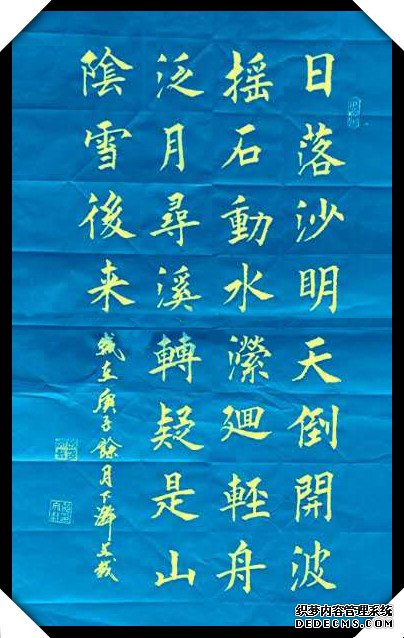 日落沙明天倒開波
摇石動水濚廻輕舟
泛月尋溪轉疑是山
陰雪後来
歲在庚子餘月下澣
织梦内容管理系统
DEDECMS.COM